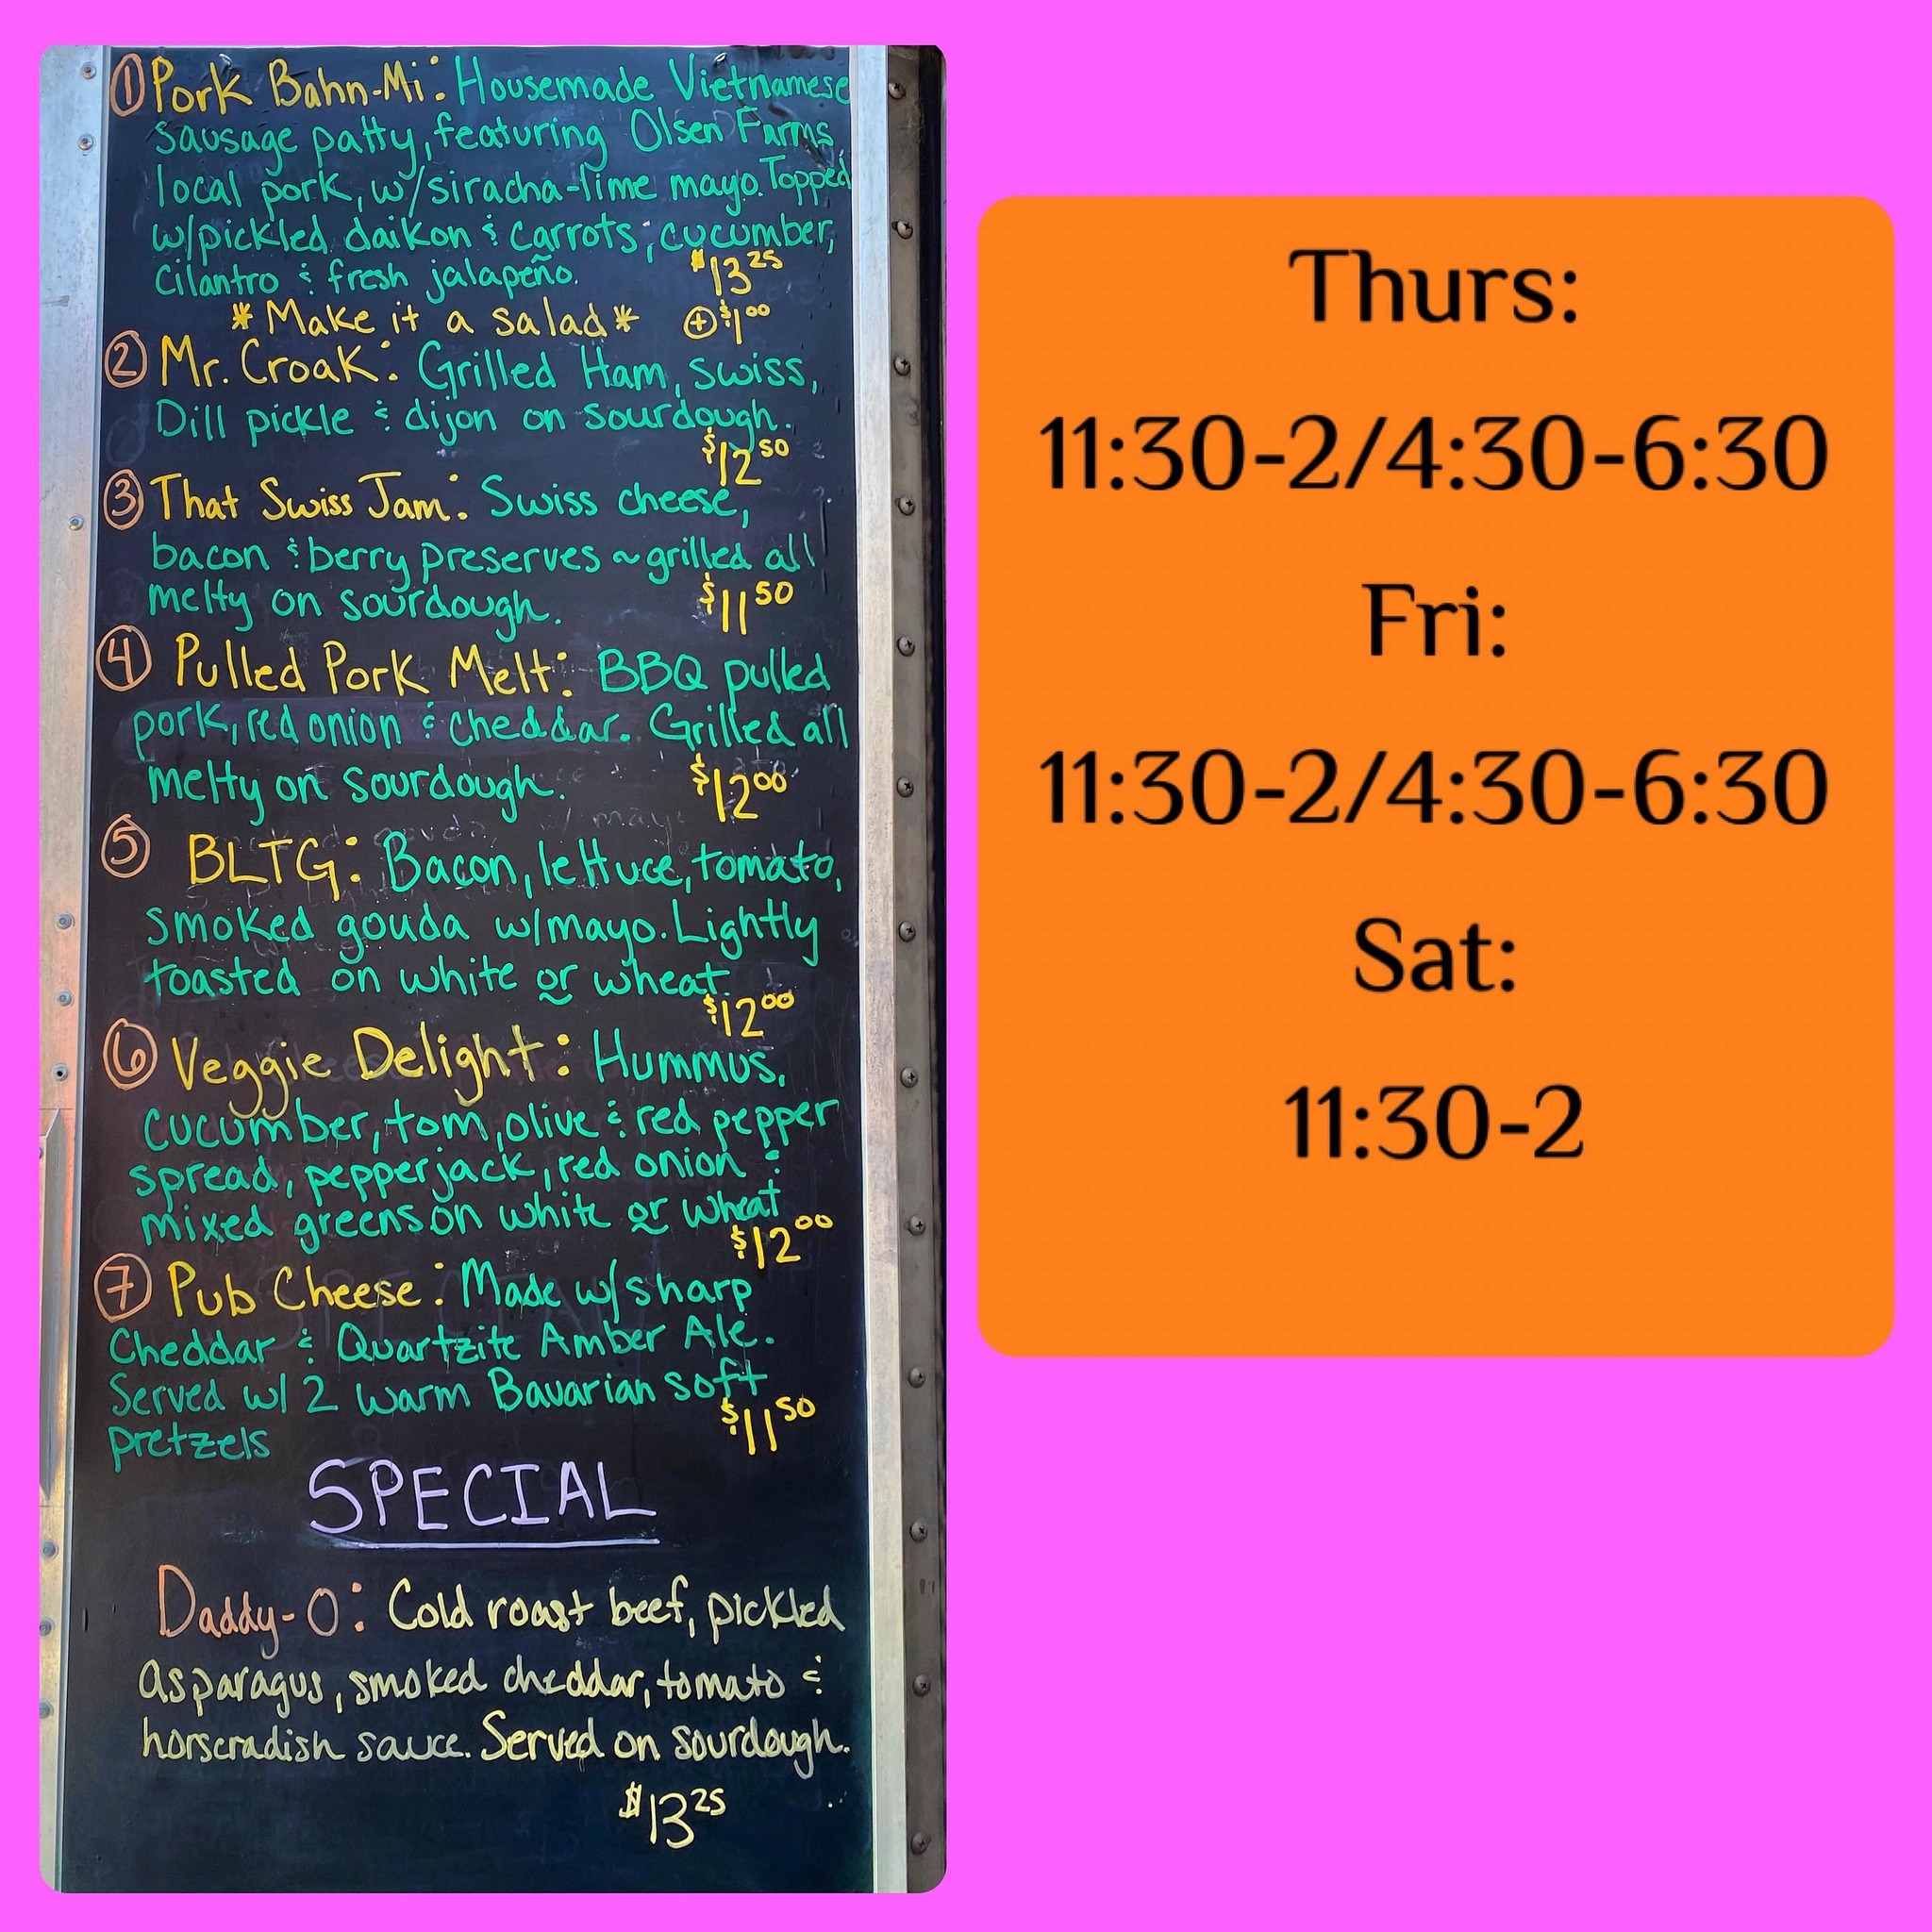 ① Pork Bahn-Mi: Housemade Vietnamese
sausage patty, featuring Olsen Farms
local pork, w/siracha-lime mayo. Topped
w/pickled daikon & carrots, cucumber,
cilantro & fresh jalapeño. $13.25
*Make it a salad* ⊕$1.00
② Mr. Croak: Grilled Ham, swiss,
Dill pickle & dijon on sourdough.
$12.50
③ That Swiss Jam: Swiss cheese,
bacon & berry preserves ~ grilled all
melty on sourdough. $11.50
④ Pulled Pork Melt: BBQ pulled
pork, red onion & cheddar. Grilled all
melty on sourdough. $12.00
⑤ BLTG: Bacon, lettuce, tomato,
smoked gouda w/mayo. Lightly
toasted on white or wheat.
$12.00
⑥ Veggie Delight: Hummus,
cucumber, tom, olive & red pepper
spread, pepperjack, red onion &
mixed greens on white or wheat
$12.00
⑦ Pub Cheese: Made w/sharp
Cheddar & Quartzite Amber Ale.
Served w/ 2 warm Bavarian soft
pretzels $11.50
SPECIAL
Daddy-O: Cold roast beef, pickled
asparagus, smoked cheddar, tomato &
horseradish sauce. Served on sourdough.
$13.25
Thurs:
11:30-2/4:30-6:30
Fri:
11:30-2/4:30-6:30
Sat:
11:30-2